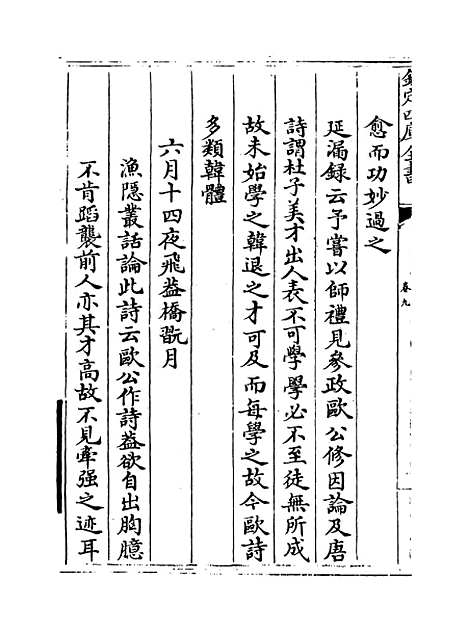 欽定四庫全書
卷九
愈而功妙過之
延漏録云予嘗以師禮見參政歐公修因論及唐
詩謂杜子美才出人表不可學學必不至徒無所成
故未始學之韓退之才可及而每學之故今歐詩
多類韓體
六月十四夜飛葢橋翫月
漁隠叢話論此詩云歐公作詩葢欲自出胸臆
不肯蹈襲前人亦其才高故不見牽强之迹耳